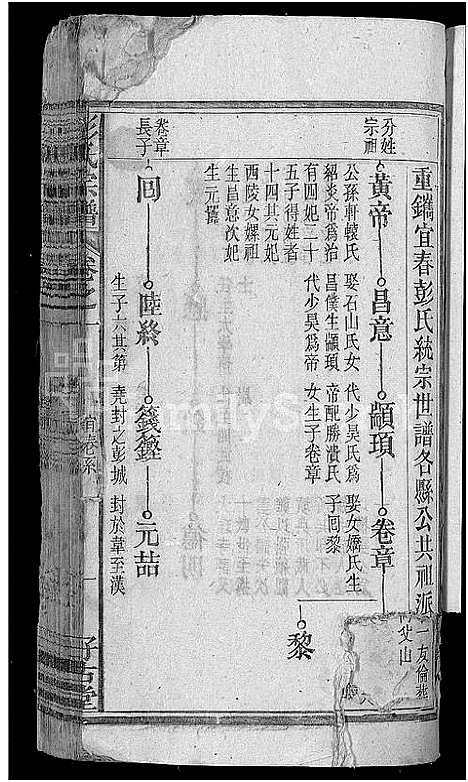 重鐫宜春彭氏統宗世譜各縣公共祖派
一友倫
分姓
宗祖
黃帝
公孫軒轅氏
紹炎帝爲治
有四妃二十
五子得姓者
十四其元妃
西陵女嫘祖
生昌意次妃
生元囂
昌意
娶石山氏女
昌僕生顓頊
代少昊爲帝
顓頊
代少昊氏爲
帝配勝濆氏
女生子卷章
卷章
娶女嬌氏生
子回黎
黎
卷章
長子
回
陸終
生子六其第
籛鏗
堯封之彭城
元喆
封於韋至漢
彭氏宗譜
卷之一
一